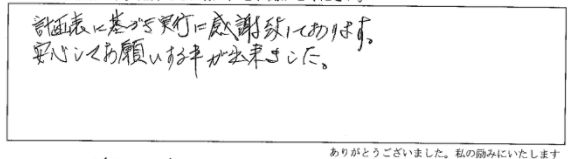 計画表に基づき実行に感謝致しております。
安心してお願いする事が出来ました。
ありがとうございました。私の励みにいたします